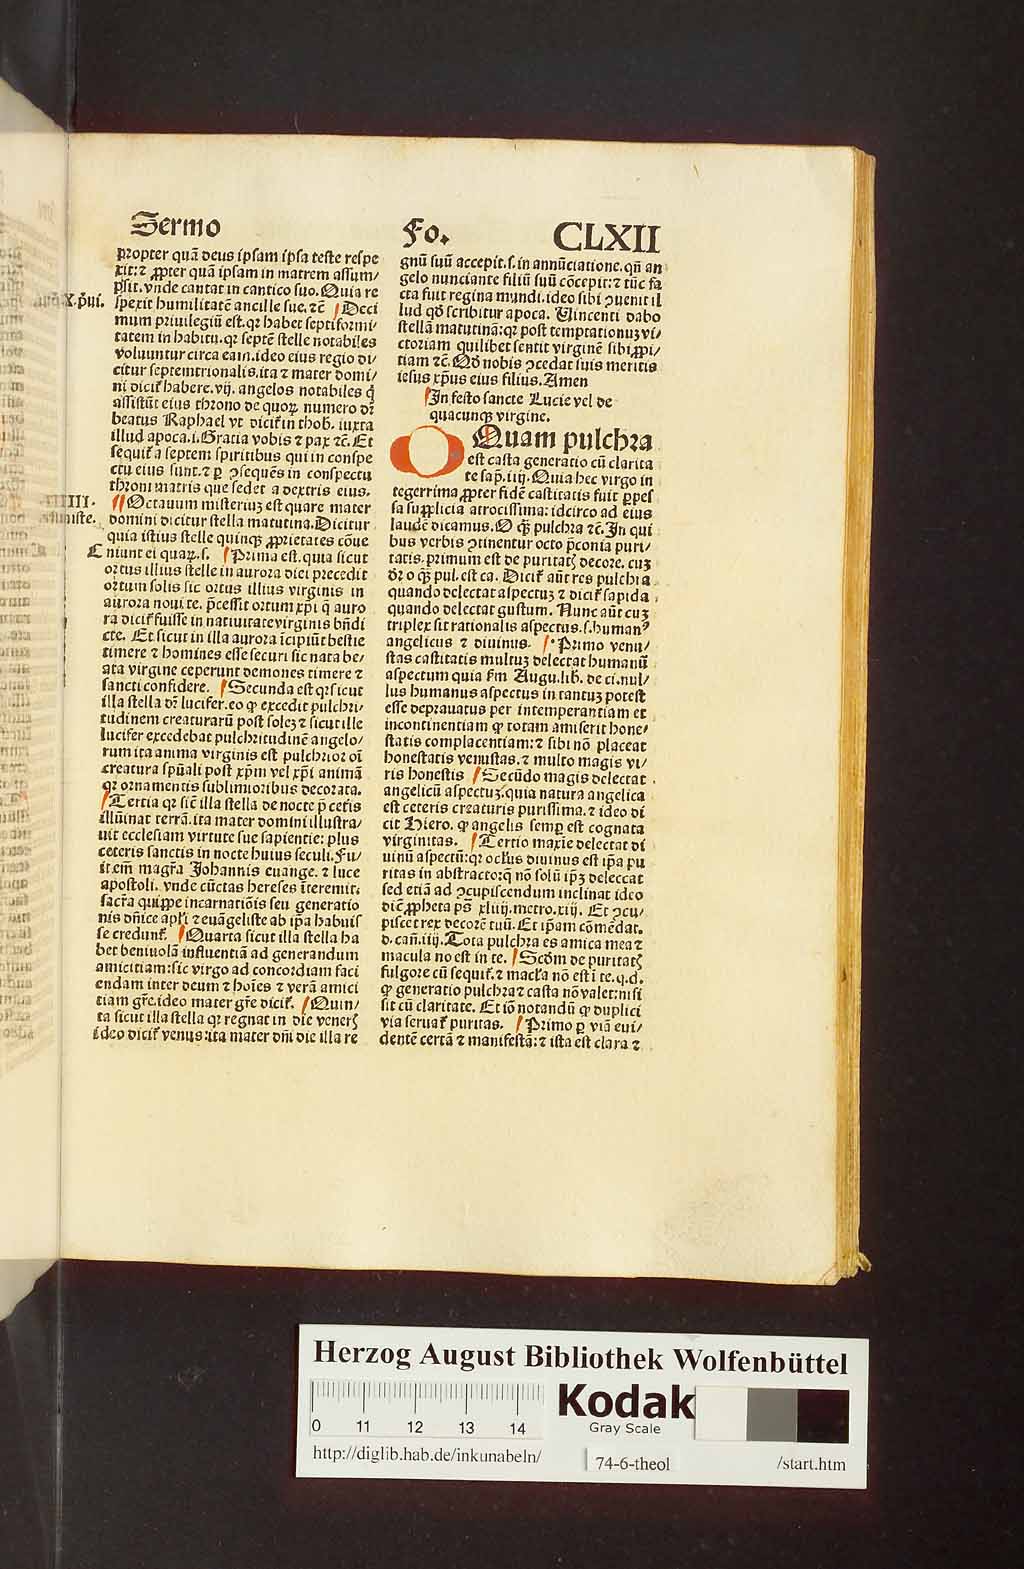 Sermo
Fo.
CLXII
propter quã deus ipsam ipsa teste respe
xit: ⁊ ꝓpter quã ipsam in matrem assum/
psit. vnde cantat in cantico suo. Quia re
spexit humilitatẽ ancille sue. ⁊c̃ Deci
mum priuilegiũ est. qꝛ habet septiformi/
tatem in habitu. qꝛ septẽ stelle notabiles
voluuntur circa eam. ideo eius regio di/
citur septemtrionalis. ita ⁊ mater domi/
ni dicit᷑ habere. vij. angelos notabiles q̃
assistũt eius throno de quoꝝ numero dr̃
beatus Raphael vt dicit᷑ in thob. iuxta
illud apoca. i. Gratia vobis ⁊ pax ⁊c̃. Et
sequit᷑ a septem spiritibus qui in conspe
ctu eius sunt. ⁊ ꝑ ꝯsequẽs in conspectu
throni matris que sedet a dextris eius.
Octauum misteriuꝫ est quare mater
domini dicitur stella matutina. Dicitur
quia istius stelle quinqꝫ ꝓprietates cõue
niunt ei quaꝝ. s. Prima est. quia sicut
ortus illius stelle in aurora diei precedit
ortum solis sic ortus illius virginis in
aurora noui te. p̃cessit ortum xp̃i q̃ auro
ra dicit᷑ fuisse in natiuitate virginis bñdi
cte. Et sicut in illa aurora ĩcipiũt bestie
timere ⁊ homines esse securi sic nata be/
ata virgine ceperunt demones timere ⁊
sancti confidere. Secunda est qꝛ sicut
illa stella dr̃ lucifer. eo ꝙ excedit pulchri/
tudinem creaturarũ post soleꝫ ⁊ sicut ille
lucifer excedebat pulchritudinẽ angelo/
rum ita anima virginis est pulchrior oĩ
creatura sp̃uali post xp̃m vel xp̃i animã
qꝛ ornamentis sublimioribus decorata.
Tertia qꝛ sic̃ illa stella de nocte p̃ cet̃is
illũinat terrã. ita mater domini illustra/
uit ecclesiam virtute sue sapientie: plus
ceteris sanctis in nocte huius seculi. Fu/
it em̃ magr̃a Johannis euange. ⁊ luce
apostoli. vnde cũctas hereses ĩteremit.
sacr̃a quippe incarnatiõis seu generatio
nis dñice apl̃i ⁊ euãgeliste ab ip̃a habuis
se credunt᷑. Quarta sicut illa stella ha
bet beniuolã influentiã ad generandum
amicitiam: sic virgo ad concordiam faci
endam inter deum ⁊ hoĩes ⁊ verã amici
tiam gr̃e. ideo mater gr̃e dicit᷑. Quin/
ta sicut illa stella qꝛ regnat in die venerꝭ
ideo dicit᷑ venus: ita mater dñi die illa re
gnũ suũ accepit. s. in annũciatione. qñ an
gelo nunciante filiũ suũ cõcepit: ⁊ tũc fa
cta fuit regina mundi. ideo sibi ꝯuenit il
lud qd̃ scribitur apoca. Vincenti dabo
stellã matutinã: qꝛ post temptationuꝫ vi/
ctoriam quilibet sentit virginẽ sibi ꝓpi/
tiam ⁊c̃. Qd̃ nobis ꝯcedat suis meritis
iesus xp̃us eius filius. Amen
In festo sancte Lucie vel de
quacunqꝫ virgine.
O Quam pulchra
est casta generatio cũ clarita
te sap̃. iiij. Quia hec virgo in
tegerrima ꝓpter fidẽ castitatis fuit ꝑpes
sa supplicia atrocissima: idcirco ad eius
laudẽ dicamus. O q̃ꝫ pulchra ⁊c̃. In qui
bus verbis ꝯtinentur octo p̃conia puri/
tatis. primum est de puritatꝭ decore. cuꝫ
dr̃ o q̃ꝫ pul. est ca. Dicit᷑ aũt res pulchra
quando delectat aspectuꝫ ⁊ dicit᷑ sapida
quando delectat gustum. Nunc aũt cuꝫ
triplex sit rationalis aspectus. s. humanꝰ
angelicus ⁊ diuinus. Primo venu/
stas castitatis multuꝫ delectat humanũ
aspectum quia s̃m Augu. lib. de ci. nul/
lus humanus aspectus in tantuꝫ potest
esse deprauatus per intemperantiam et
incontinentiam ꝙ totam amiserit hone/
statis complacentiam: ⁊ sibi nõ placeat
honestatis venustas. ⁊ multo magis vi/
ris honestis Secũdo magis delectat
angelicũ aspectuꝫ. quia natura angelica
est ceteris creaturis purissima. ⁊ ideo di
cit Hiero. ꝙ angelis semꝑ est cognata
virginitas. Tertio maxĩe delectat di
uinũ aspectũ: qꝛ ocl̃us diuinus est ip̃a pu
ritas in abstracto: q̃ nõ solũ ip̃ꝫ delectat
sed etiã ad ꝯcupiscendum inclinat ideo
dic̃ ꝓpheta pš xliiij. metro. xij. Et ꝯcu/
piscet rex decorẽ tuũ. Et ip̃am cõmẽdat.
d. cañ. iiij. Tota pulchra es amica mea ⁊
macula no est in te. Scd̃m de puritatꝭ
fulgore cũ sequit᷑. ⁊ macl̃a nõ est ĩ te. q. d.
ꝙ generatio pulchra ⁊ casta nõ valet: nisi
sit cũ claritate. Et iõ notandũ ꝙ duplici
via seruat᷑ puritas. Primo ꝑ viã eui/
dentẽ certã ⁊ manifestã: ⁊ ista est clara ⁊
Herzog August Bibliothek Wolfenbüttel
Kodak
Gray Scale
0 11 12 13 14
http://diglib.hab.de/inkunabeln/
74-6-theol
/start.htm